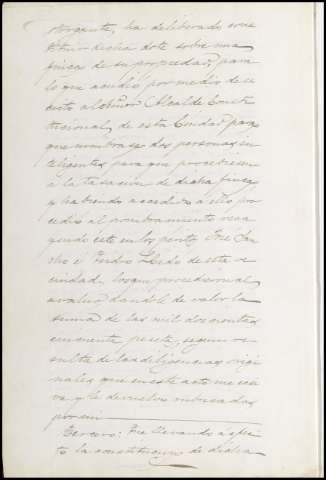 otorgante, ha deliberado cons
tituir dicha dote sobre una
finca de su propiedad, para
lo que acudió por medio de es
crito al Señor Alcalde Consti
tucional de esta Ciudad para
que nombrase dos personas in
teligentes para que procediesen
a la tasacion de dicha finca
y habiendo accedido a ello pro
cedió al nombramiento reca
yendo éste en los peritos José
é Isidro de esta ve
cindad, los que procedieron al
avaluo, dándole de valor la
suma de las mil doscientas
cincuenta pesetas, segun re
sulta de las diligencias origi
nales que en este acto me exhi
ve y le devuelvo rubricadas
por mi
Tercero: Que llevando á efec
to la constitucion de dicha